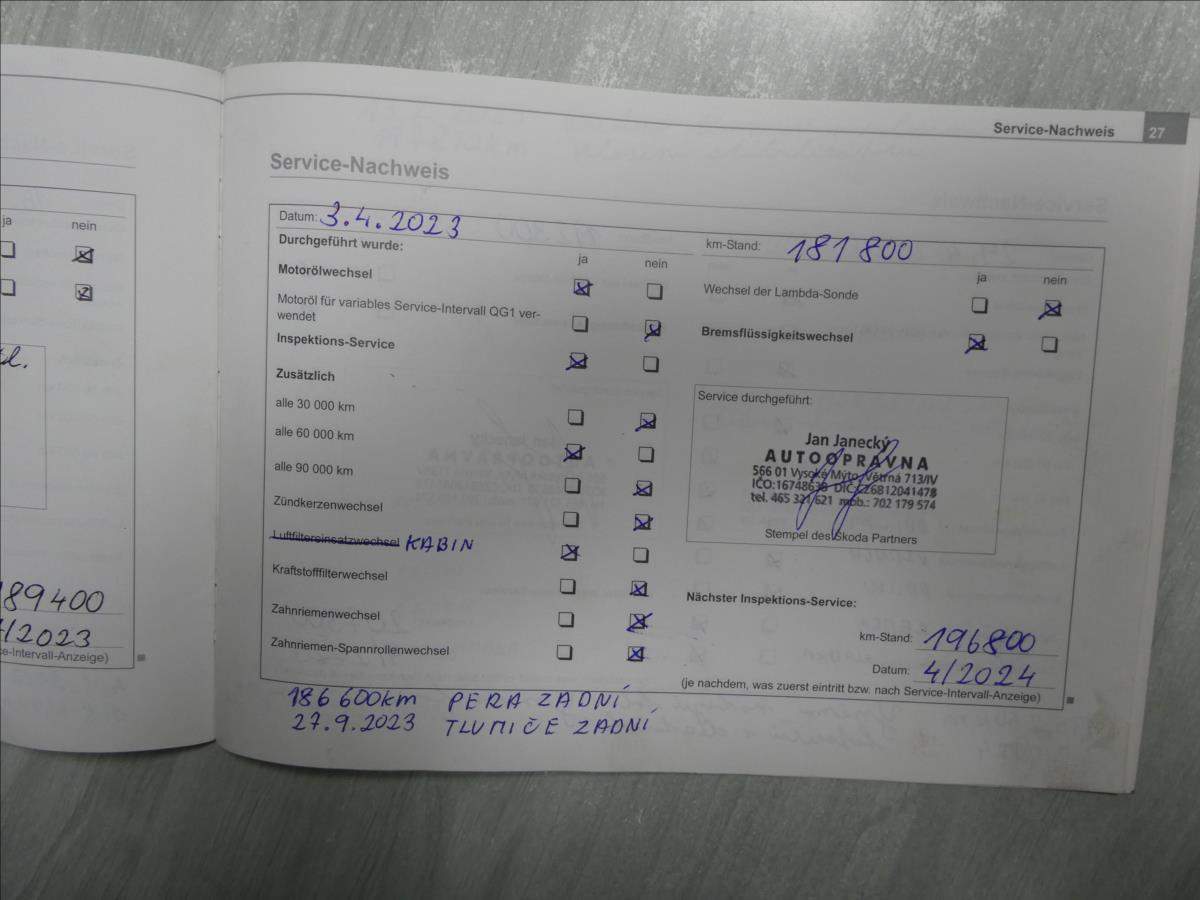 Service-Nachweis 27
ja nein
189400
/2023
ce-Intervall-Anzeige)
Service-Nachweis
Datum: 3.4.2023
km-Stand: 181 800
Durchgeführt wurde:
ja nein
ja nein
Motorölwechsel
Wechsel der Lambda-Sonde
Motoröl für variables Service-Intervall QG1 ver-
wendet
Bremsflüssigkeitswechsel
Inspektions-Service
Zusätzlich
alle 30 000 km
alle 60 000 km
alle 90 000 km
Zündkerzenwechsel
Luftfiltereinsatzwechsel KABIN
Kraftstofffilterwechsel
Zahnriemenwechsel
Zahnriemen-Spannrollenwechsel
Service durchgeführt:
Jan Janecký
AUTOOPRAVNA
566 01 Vysoké Mýto, Větrná 713/IV
IČO:16748638 DIČ:
tel. 465 321 621 mob.: 702 179 574
Stempel des Skoda Partners
Nächster Inspektions-Service:
km-Stand: 196800
Datum: 4/2024
(je nachdem, was zuerst eintritt bzw. nach Service-Intervall-Anzeige)
186 600km PERA ZADNÍ
27.9.2023 TLUMIČE ZADNÍ